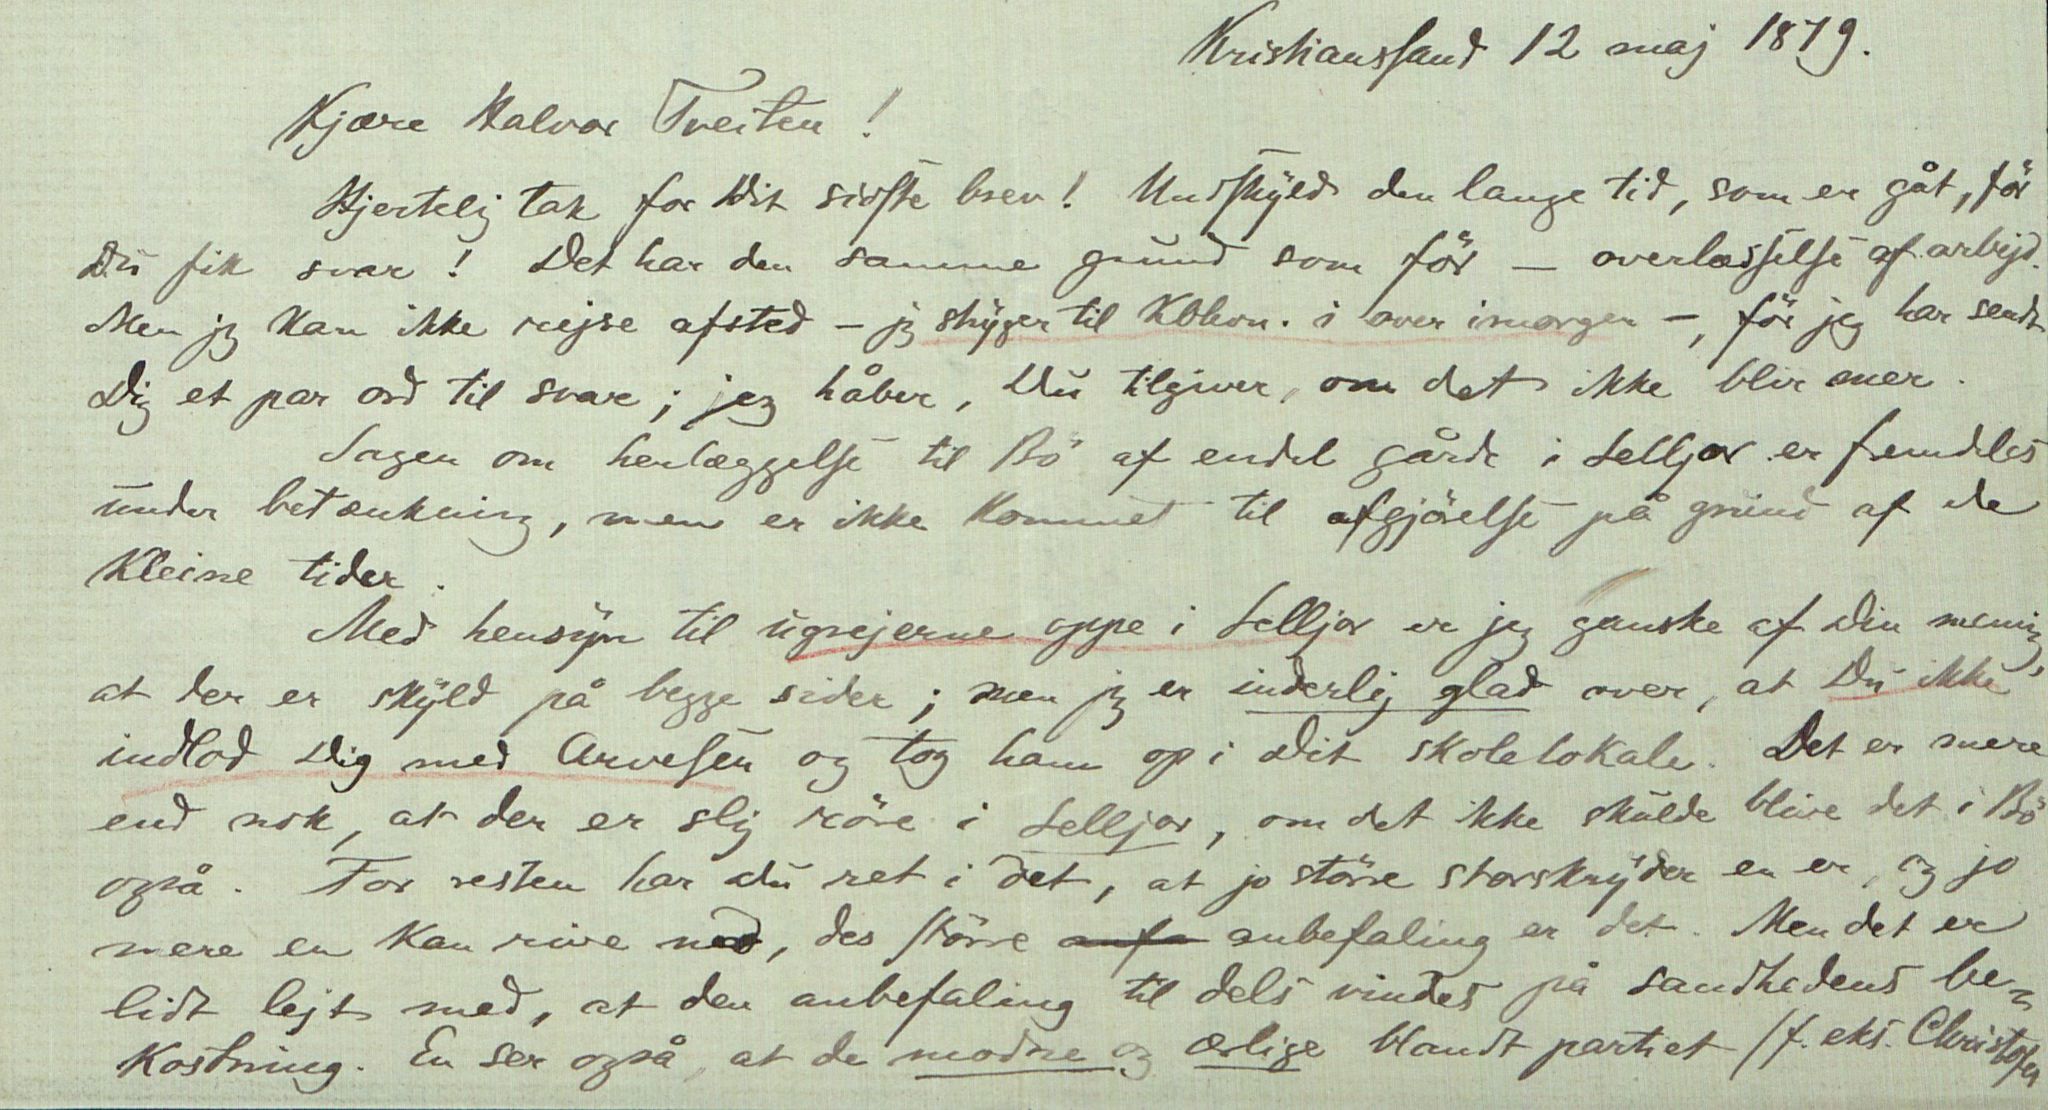 Kristianssand 12 maj 1879.
Kjære Halvor Tveiten!
Hjertelig tak for Dit sidste brev! Undskyld den lange tid, som er gåt, för
Du fik svar! Det har den samme grund som för – overlæsselse af arbejd.
Men jeg kan ikke rejse afsted – jeg stryger til Kbhvn. i over imorgen –, för jeg har sendt
Dig et par ord til svar; jeg håber, Du tilgiver, om det ikke blir mer.
Sagen om henlæggelse til Bö af endel gårde i Selljor er fremdeles
under betænkning, men er ikke kommet til afgjörelse på grund af de
kleine tider.
Med hensyn til ugrejerne oppe i Selljor er jeg ganske af Din mening,
at der er skyld på begge sider; men jeg er inderlig glad over, at Du ikke
indlod Dig med Arvesen og tog ham op i Dit skolelokale. Det er mere
end nok, at der er slig röre i Selljor, om det ikke skulde blive det i Bö
også. For resten har du ret i det, at jo större storskryder en er, og jo
mere en kan rive ned, des större anbefaling er det. Men det er
lidt lejt med, at den anbefaling til dels vindes på sandhedens be-
kostning. En ser også, at de modne og ærlige blandt partiet (f. eks. Christofer